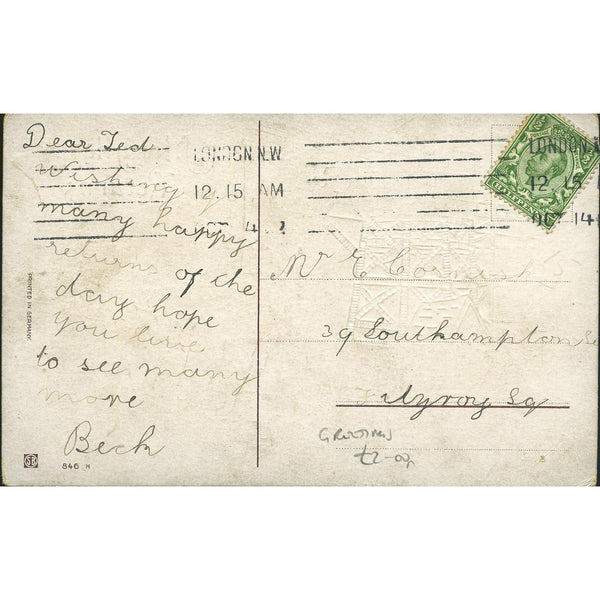 Dear Ted
Wishing you
many happy
returns of the
day hope
you live
to see many
more
Beck
LONDON.N.W
12.15 AM
OCT 14
LONDON.N
12.15
OCT 14
Mr E Cornish
39 Southampton
Fitzroy Sq
PRINTED IN GERMANY.
SB
846 H
GREETINGS
£2-00